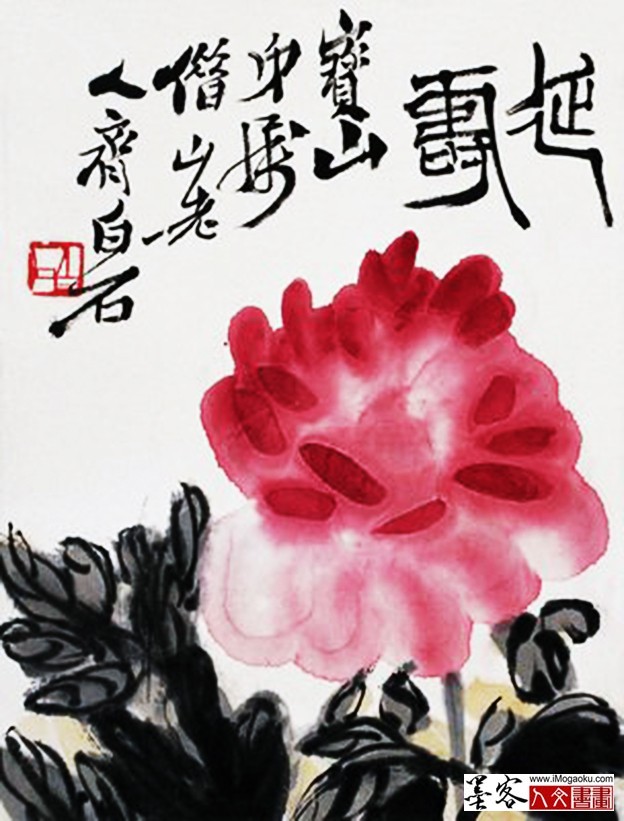 延壽
寶山
借山老
人齊白石
墨客
www.iMogaoku.com
人文書畫